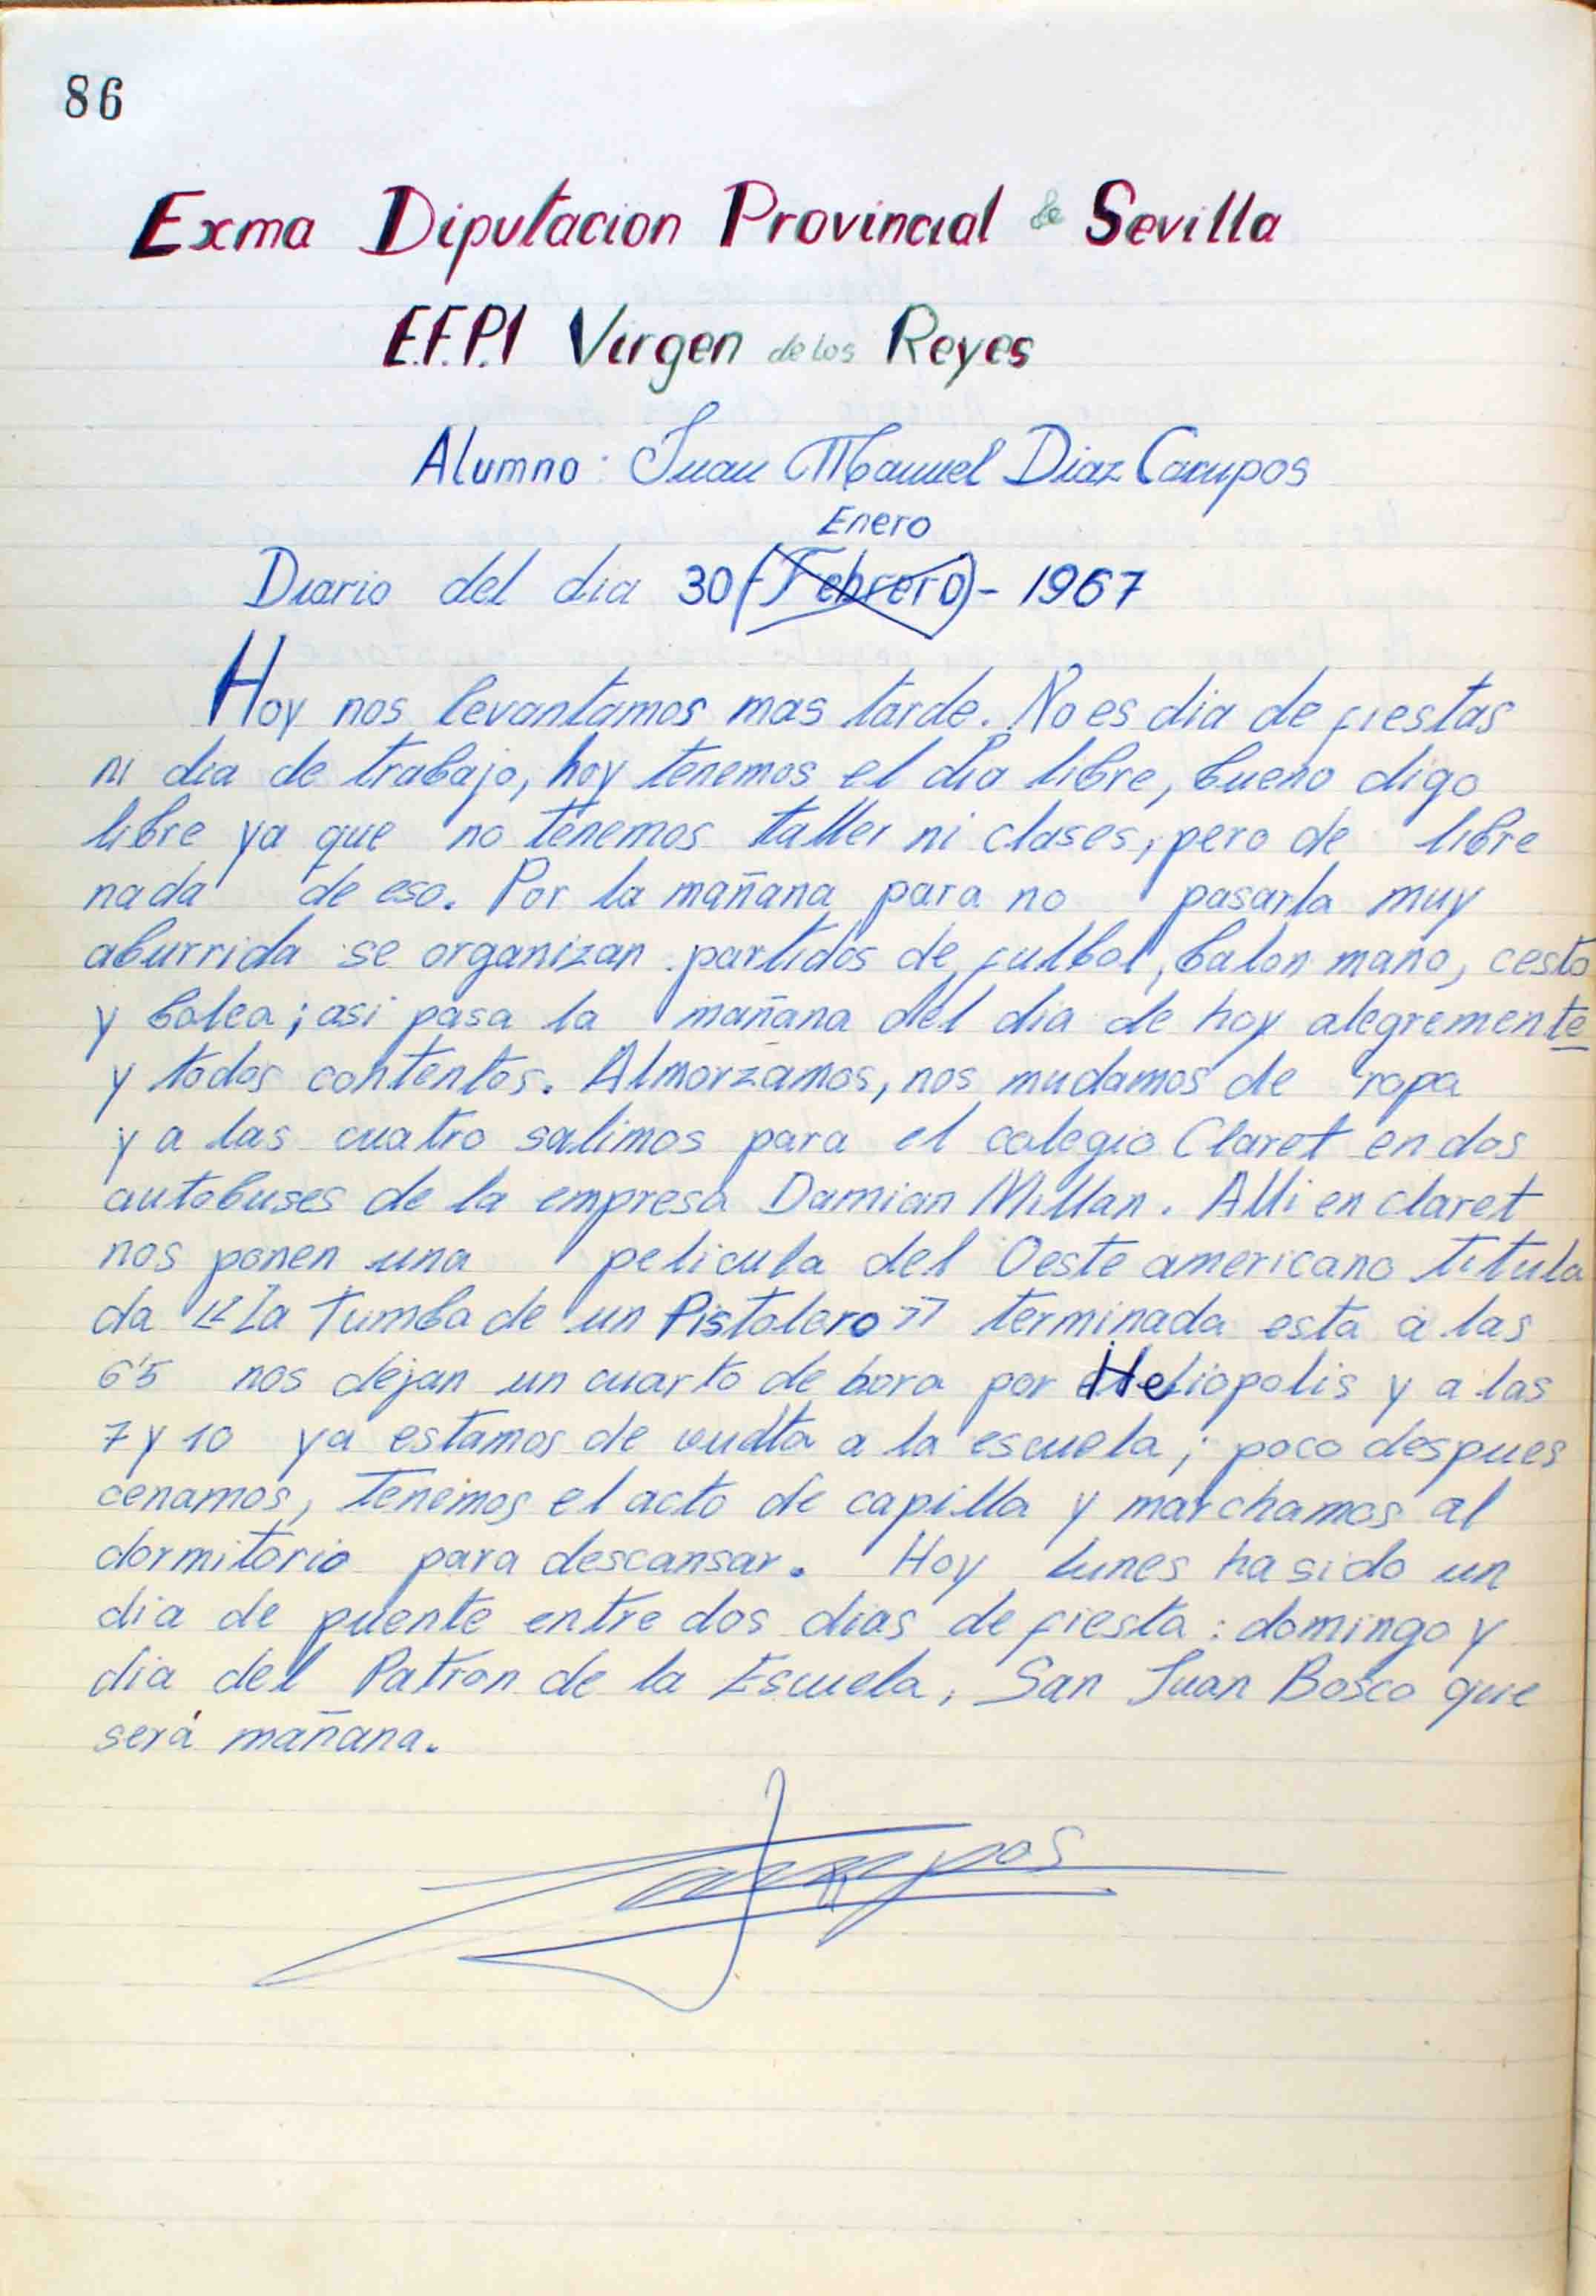 86
Exma Diputacion Provincial de Sevilla
E.F.P.I Virgen de los Reyes
Alumno: Juan Manuel Diaz Campos
Enero
Diario del dia 30 (Febrero) - 1967
Hoy nos levantamos mas tarde. No es dia de fiestas
ni dia de trabajo, hoy tenemos el dia libre, bueno digo
libre ya que no tenemos taller ni clases, pero de libre
nada de eso. Por la mañana para no pasarla muy
aburrida se organizan partidos de futbol, balon mano, cesto
y bolea; asi pasa la mañana del dia de hoy alegremente
y todos contentos. Almorzamos, nos mudamos de ropa
y a las cuatro salimos para el colegio Claret en dos
autobuses de la empresa Damian Millan. Alli en claret
nos ponen una pelicula del Oeste americano titula
da "La Tumba de un Pistolero" terminada esta a las
6'5 nos dejan un cuarto de hora por Heliopolis y a las
7 y 10 ya estamos de vuelta a la escuela; poco despues
cenamos, tenemos el acto de capilla y marchamos al
dormitorio para descansar. Hoy lunes ha sido un
dia de puente entre dos dias de fiesta: domingo y
dia del Patron de la Escuela, San Juan Bosco que
será mañana.
Campos